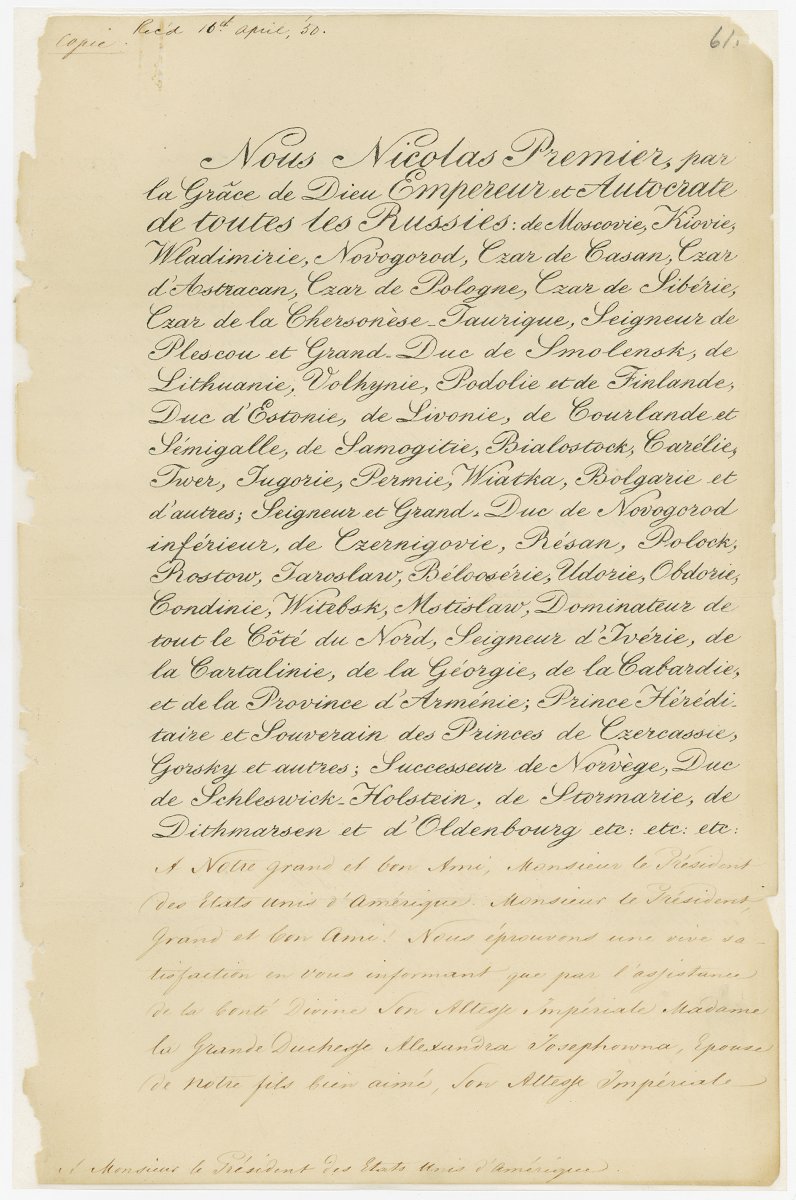 Copie. Rec'd 16th April, '50.
61.
Nous Nicolas Premier, par
la Grãce de Dieu Empereur et Autocrate
de toutes les Russies: de Moscovie, Kiovie,
Wladimirie, Novogorod, Czar de Casan, Czar
d'Astracan, Czar de Pologne, Czar de Sibérie,
Czar de la Chersonèse-Taurique, Seigneur de
Plescou et Grand-Duc de Smolensk, de
Lithuanie, Volhynie, Podolie et de Finlande,
Duc d'Estonie, de Livonie, de Courlande et
Sémigalle, de Samogitie, Bialostock, Carélie,
Twer, Jugorie, Permie, Wiatka, Bolgarie et
d'autres; Seigneur et Grand-Duc de Novogorod
inférieur, de Czernigovie, Résan, Polock,
Rostow, Jaroslaw, Béloosérie, Udorie, Obdorie,
Condinie, Witebsk, Mstislaw, Dominateur de
tout le Côté du Nord, Seigneur d'Ivérie, de
la Cartalinie, de la Géorgie, de la Cabardie,
et de la Province d'Arménie; Prince Hérédi-
taire et Souverain des Princes de Czercassie,
Gorsky et autres; Successeur de Norvège, Duc
de Schleswick-Holstein, de Stormarie, de
Dithmarsen et d'Oldenbourg etc: etc: etc:
A Notre grand et bon Ami, Monsieur le Président
des Etats Unis d'Amérique. Monsieur le Président,
Grand et bon Ami! Nous éprouvons une vive sa-
tisfaction en vous informant que par l'assistance
de la bonté Divine Son Altesse Impériale Madame
la Grande Duchesse Alexandra Josephowna, Epouse
de notre fils bien aimé, Son Altesse Impériale
A Monsieur le Président des Etats Unis d'Amérique.